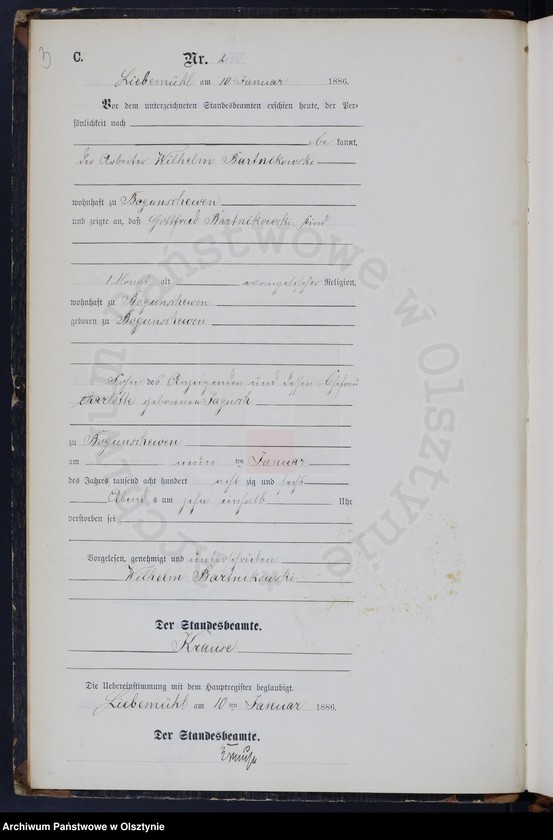 C.
Nr. 2
Liebemühl am 10 Januar 1886.
Vor dem unterzeichneten Standesbeamten erschien heute, der Per-
sönlichkeit nach
be kannt,
der Arbeiter Wilhelm Bartnikowski
wohnhaft zu Bogunschewen
und zeigte an, daß Gottfried Bartnikowski, Kind
1 Monat alt evangelischer Religion,
wohnhaft zu Bogunschewen
geboren zu Bogunschewen
Sohn des Anzeigenden und dessen Ehefrau
Charlotte geborenen Jagusch
zu Bogunschewen
am neun ten Januar
des Jahres tausend acht hundert acht zig und sechs
Abend s um zehn einhalb Uhr
verstorben sei
Vorgelesen, genehmigt und unterschrieben
Wilhelm Bartnikowski
Der Standesbeamte.
Krause
Die Uebereinstimmung mit dem Hauptregister beglaubigt.
Liebemühl am 10 ten Januar 1886.
Der Standesbeamte.
Krause
Archiwum Państwowe w Olsztynie
Archiwum Państwowe w Olsztynie